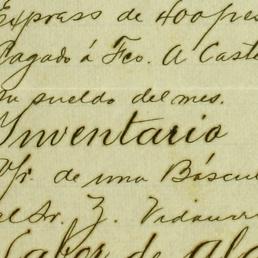 Express de 400 pes
Pagado á Fco. A Caste
su sueldo del mes.
Inventario
Vr. de una Báscul
el Sr. Z. Vidaurr
Labor de Al